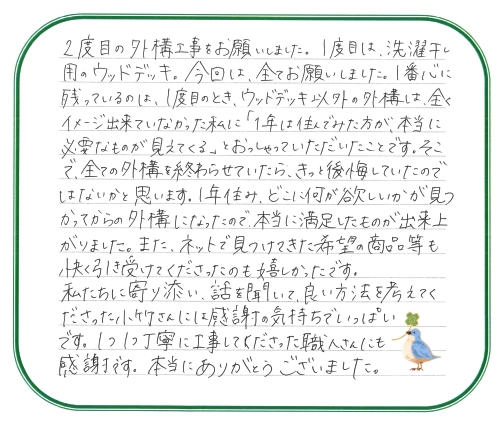 2度目の外構工事をお願いしました。1度目は、洗濯干し
用のウッドデッキ。今回は、全てお願いしました。1番心に
残っているのは、1度目のとき、ウッドデッキ以外の外構は、全く
イメージ出来ていなかった私に「1年は住んでみた方が、本当に
必要なものが見えてくる」とおっしゃっていただいたことです。そこ
で、全ての外構を終わらせていたら、きっと後悔していたので
はないかと思います。1年住み、どこに何が欲しいかが見つ
かってからの外構になったので、本当に満足したものが出来上
がりました。また、ネットで見つけてきた希望の商品等も
快く引き受けてくださったのも嬉しかったです。
私たちに寄り添い、話を聞いて、良い方法を考えてく
ださった小竹さんには感謝の気持ちでいっぱい
です。1つ1つ丁寧に工事してくださった職人さんにも
感謝です。本当にありがとうございました。